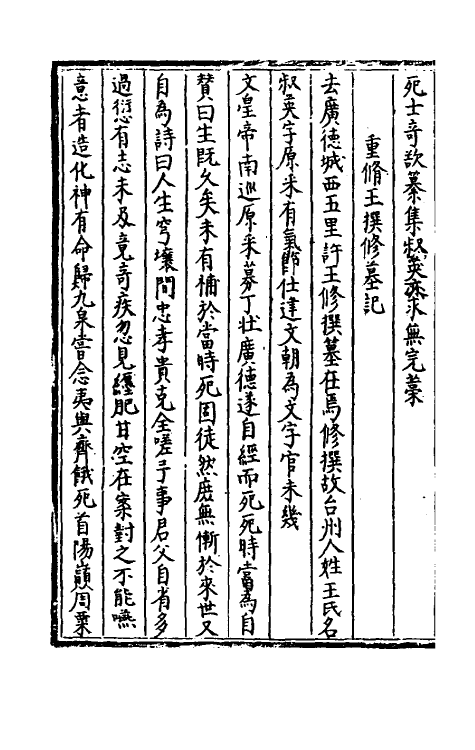 死士奇欲纂集叔英遂求無完藁
重脩王撰修墓記
去廣德城西五里許王修撰墓在焉修撰故台州人姓王氏名
叔英字原采有氣節仕建文朝為文字官未幾
文皇帝南巡原采募丁壯廣德遂自經而死死時嘗為自
贊曰生既久矣未有補於當時死固徒然庶無慚於來世又
自為詩曰人生穹壤間忠孝貴克全嗟予事君父自省多
過愆有志未及竟奇疾忽見纏肥甘空在案對之不能嚥
意者造化神有命歸九泉嘗念夷與齊餓死首陽巔周粟